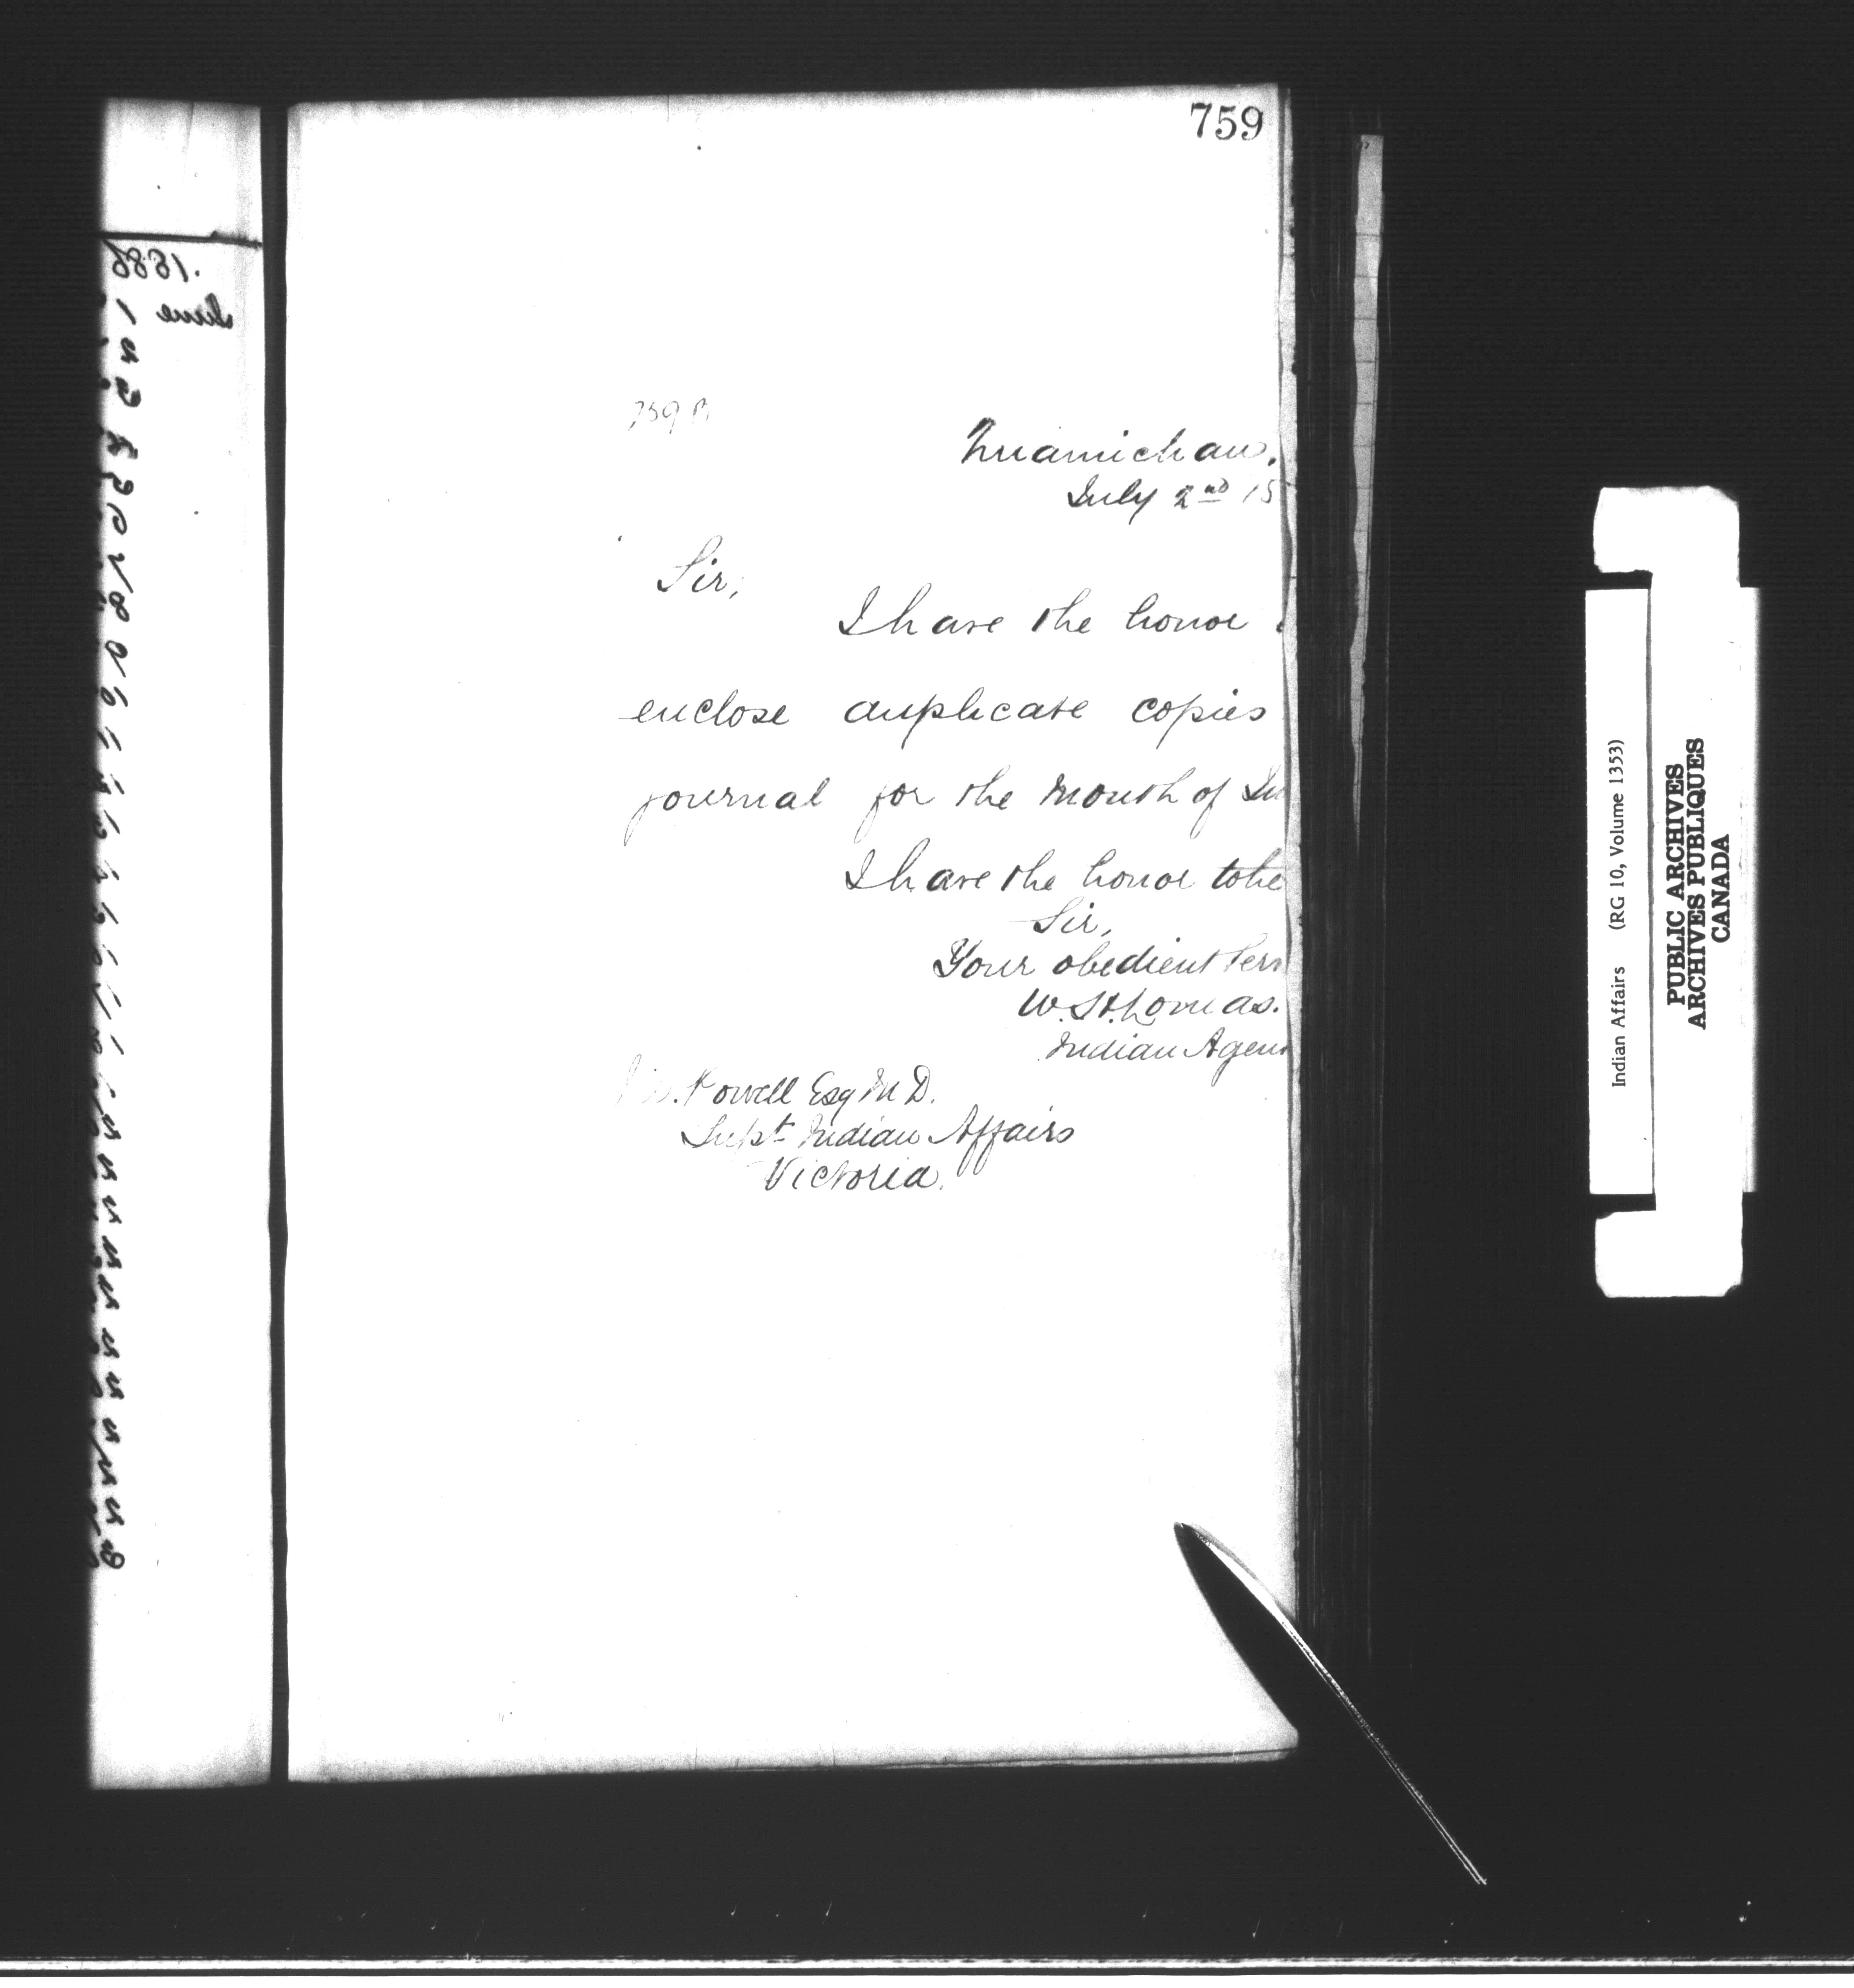 759
759
Quamichan.
July 2nd 18
Sir,
I have the honor
enclose duplicate copies
journal for the month of Ju
I have the honor to be
Sir,
Your obedient Serv
W.H. Lomas.
Indian Agent
Powell Esq M D.
Supt Indian Affairs
Victoria.
1886.
June
Indian Affairs (RG 10, Volume 1353)
PUBLIC ARCHIVES
ARCHIVES PUBLIQUES
CANADA